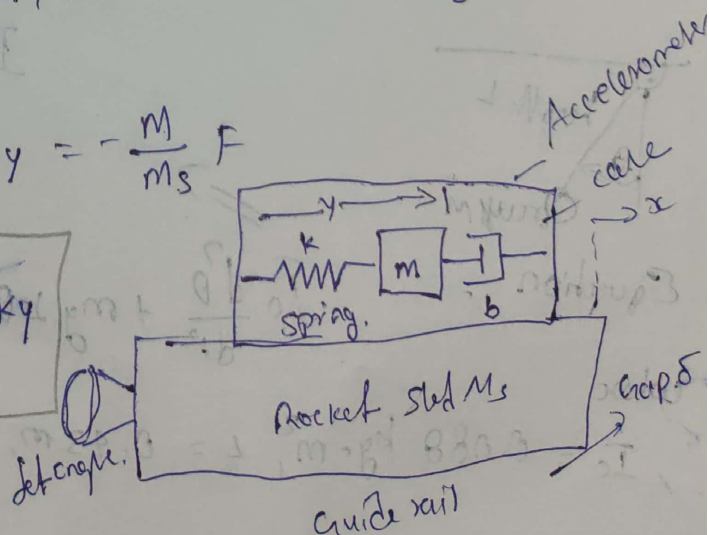 y = - M/Ms F
Accelerometer
case
y
x
k
m
b
spring.
ky
Rocket Sled Ms
Gap.δ
Jet engine.
Guide rail
Equation